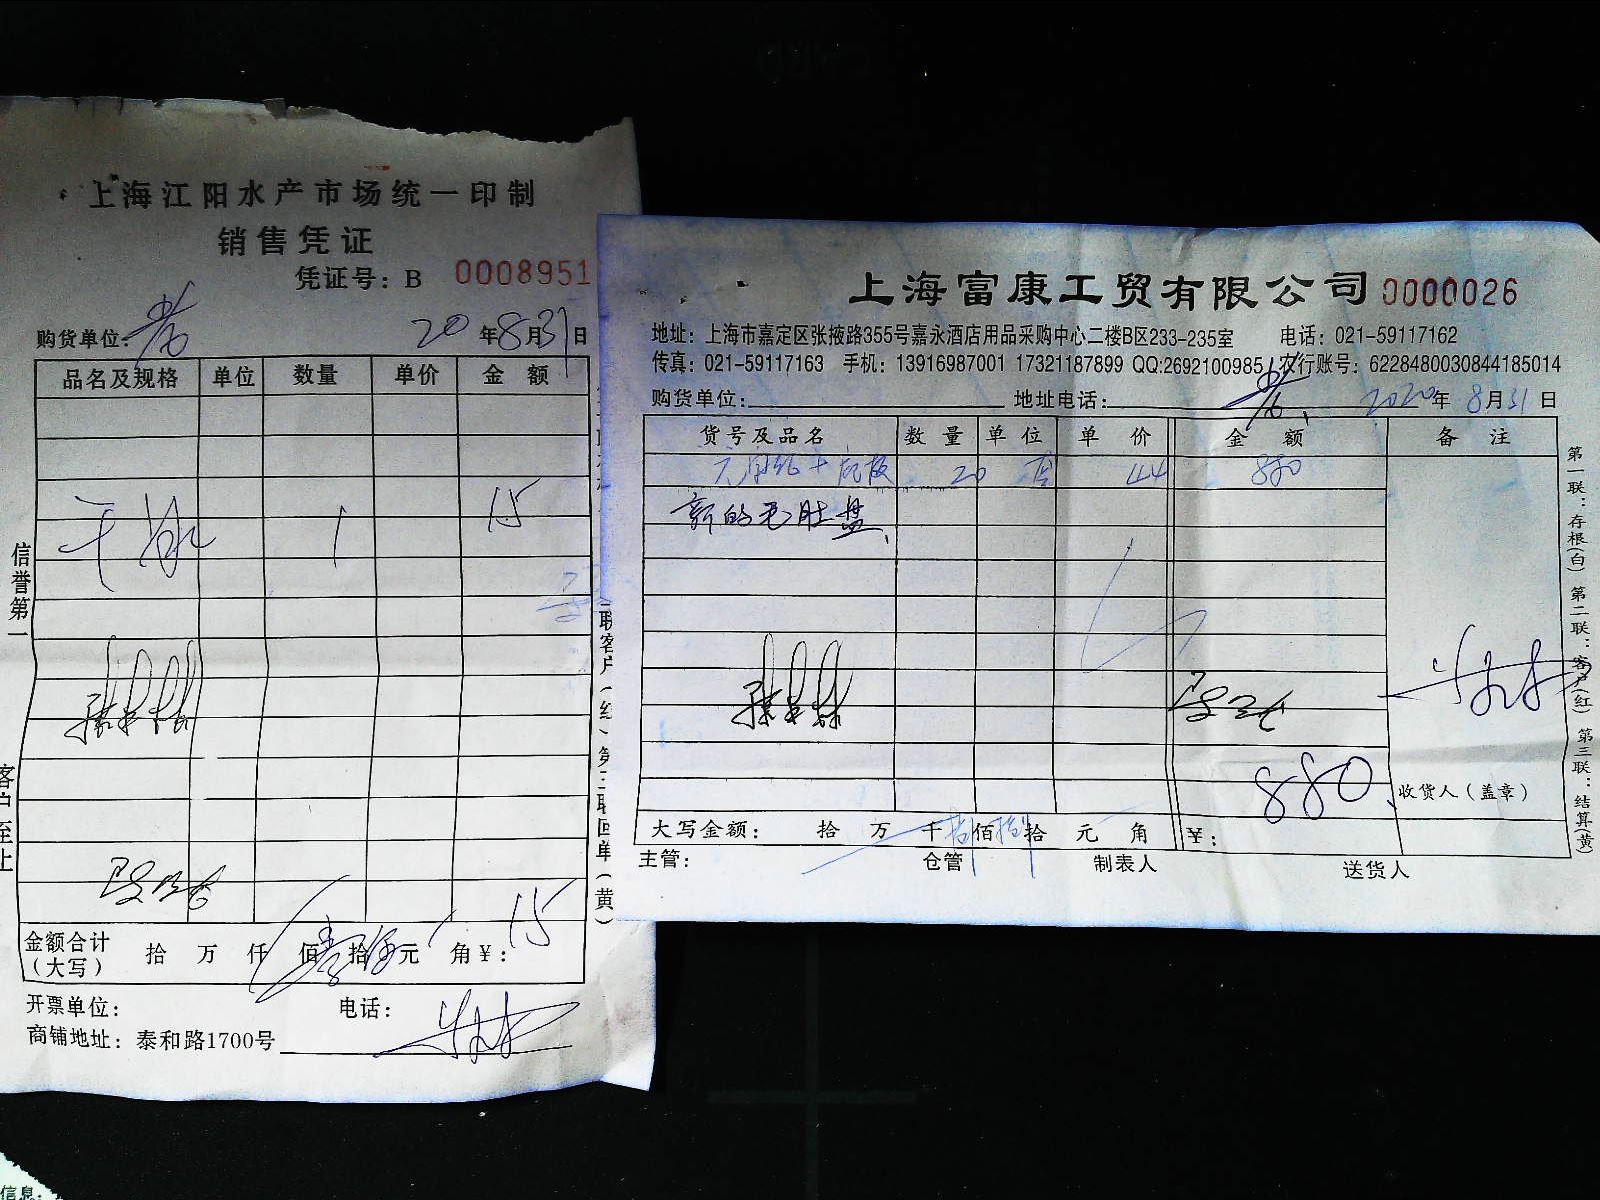 上海江阳水产市场统一印制
销售凭证
凭证号：B 0008951
购货单位： 20年8月31日
品名及规格 单位 数量 单价 金额
干冰 1 15
信誉第一
客户至上
二联客户(红) 第三联回单(黄)
金额合计(大写) 拾万仟佰壹拾伍元角￥：15
开票单位： 电话：
商铺地址：泰和路1700号
上海富康工贸有限公司 0000026
地址：上海市嘉定区张掖路355号嘉永酒店用品采购中心二楼B区233-235室 电话：021-59117162
传真：021-59117163 手机：13916987001 17321187899 QQ:2692100985 农行账号：6228480030844185014
购货单位： 地址电话： 2020年8月31日
货号及品名 数量 单位 单价 金额 备注
20 44 880
新的毛肚盘
880
收货人（盖章）
大写金额： 拾万千捌佰捌拾元角 ￥：
主管： 仓管 制表人 送货人
第一联：存根(白) 第二联：客户(红) 第三联：结算(黄)
信息：